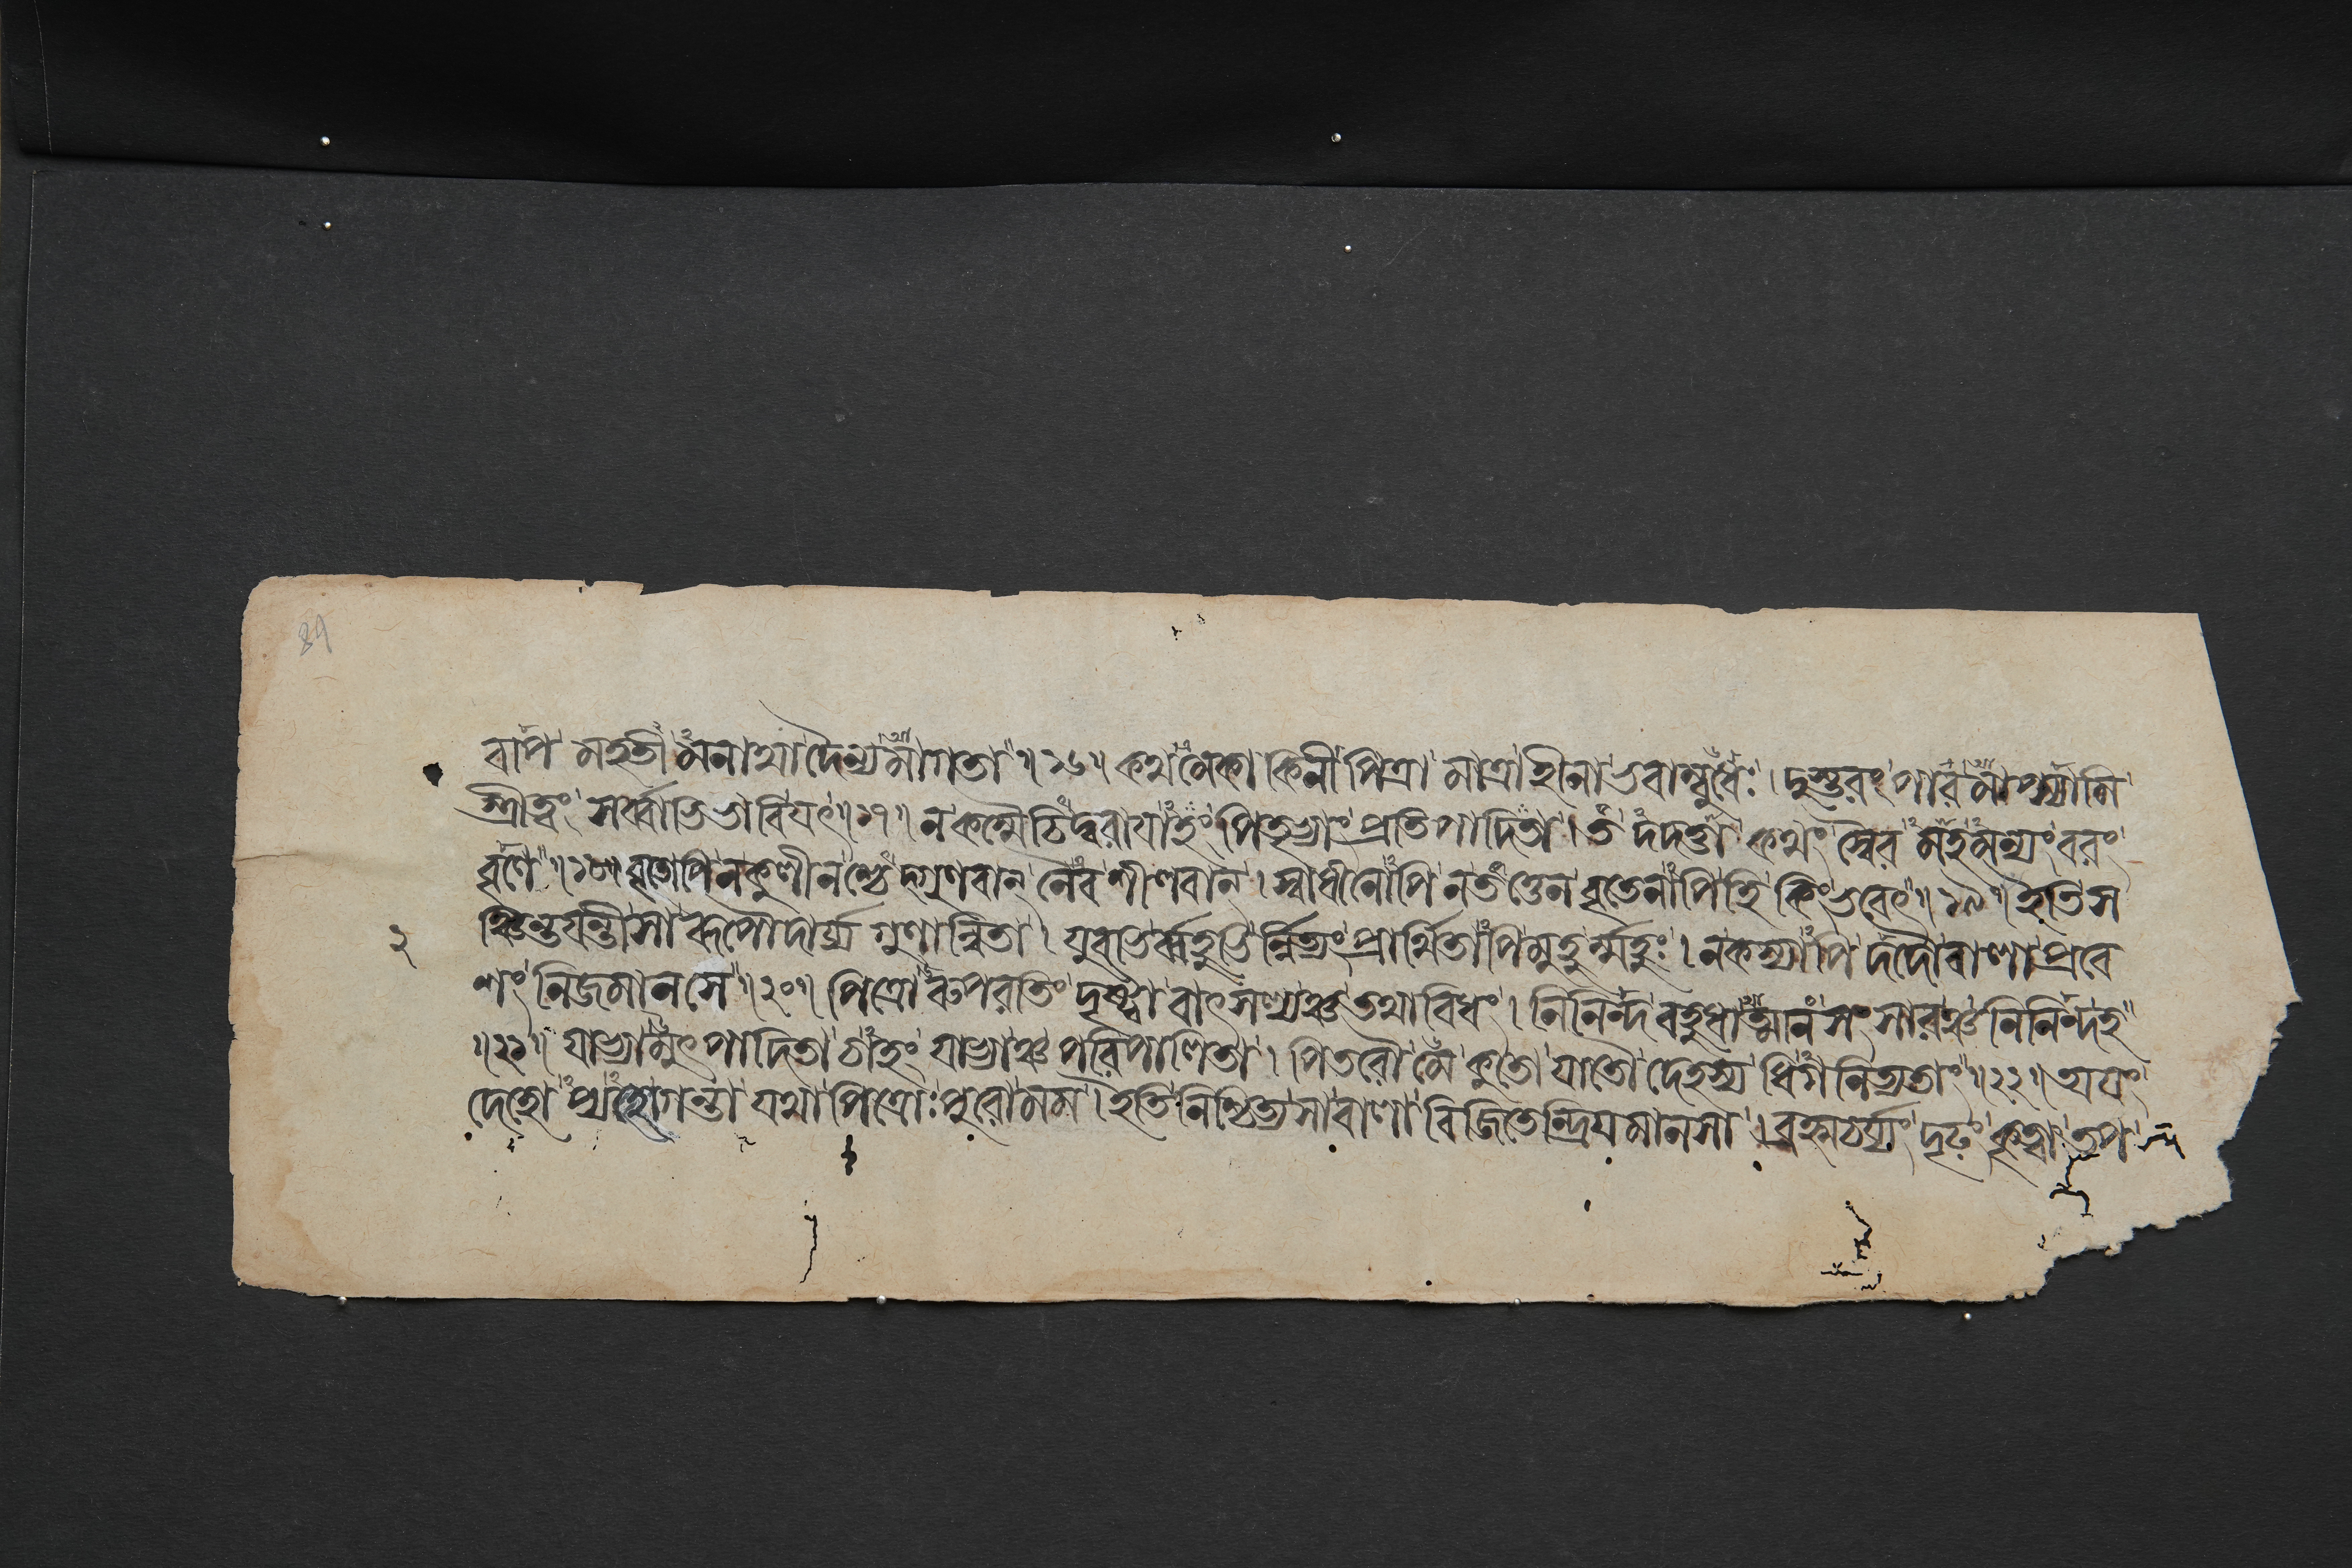 ৪৭
বাপ মহতীমনাথা দৈন্যমাগতা ॥ ১৬ ॥ কথমেকাকিনী পিত্রা মাত্রা হীনা ভবাম্বুধেঃ । দুস্তরং পারমাপ্স্যামি
স্ত্রীত্বং সর্ব্বাভিভাবি যৎ ॥ ১৭ ॥ ন কস্মৈচিদ্বরাযাহং পিতৃভ্যাং প্রতিপাদিতা । তদদত্তা কথং স্বৈরমহমন্যং বরং
বৃণে ॥ ১৮ ॥ বৃতোপি ন কুলীনশ্চেদ্গুণবান্ নৈব শীলবান্ । স্বাধীনোপি ন তত্তেন বৃতেনাপি হি কিং ভবেৎ ॥ ১৯ ॥ ইতি স
২
ঞ্চিন্তযন্তী সা রূপৌদার্য্যগুণান্বিতা । যুবভির্ব্বহুভির্ন্নিত্যং প্রার্থিতাপি মুহুর্ম্মুহুঃ । ন কস্যাপি দদৌ বালা প্রবে
শং নিজমানসে ॥ ২০ ॥ পিত্রোরুপরতিং দৃষ্ট্বা বাৎসল্যঞ্চ তথাবিধং । নিনিন্দ বহুধাত্মানং সংসারঞ্চ নিনিন্দ হ
॥ ২১ ॥ যাভ্যামুৎপাদিতা চাহং যাভ্যাঞ্চ পরিপালিতা । পিতরৌ মে কুতো যাতৌ দেহস্য ধিগনিত্যতাং ॥ ২২ ॥ অযং
দেহোপ্যহো গন্তা যথা পিত্রোঃ পুরো মম । ইতি নিশ্চিত্য সা বালা বিজিতেন্দ্রিযমানসা । ব্রহ্মচর্য্যং দৃঢ়ং কৃত্বা তপ